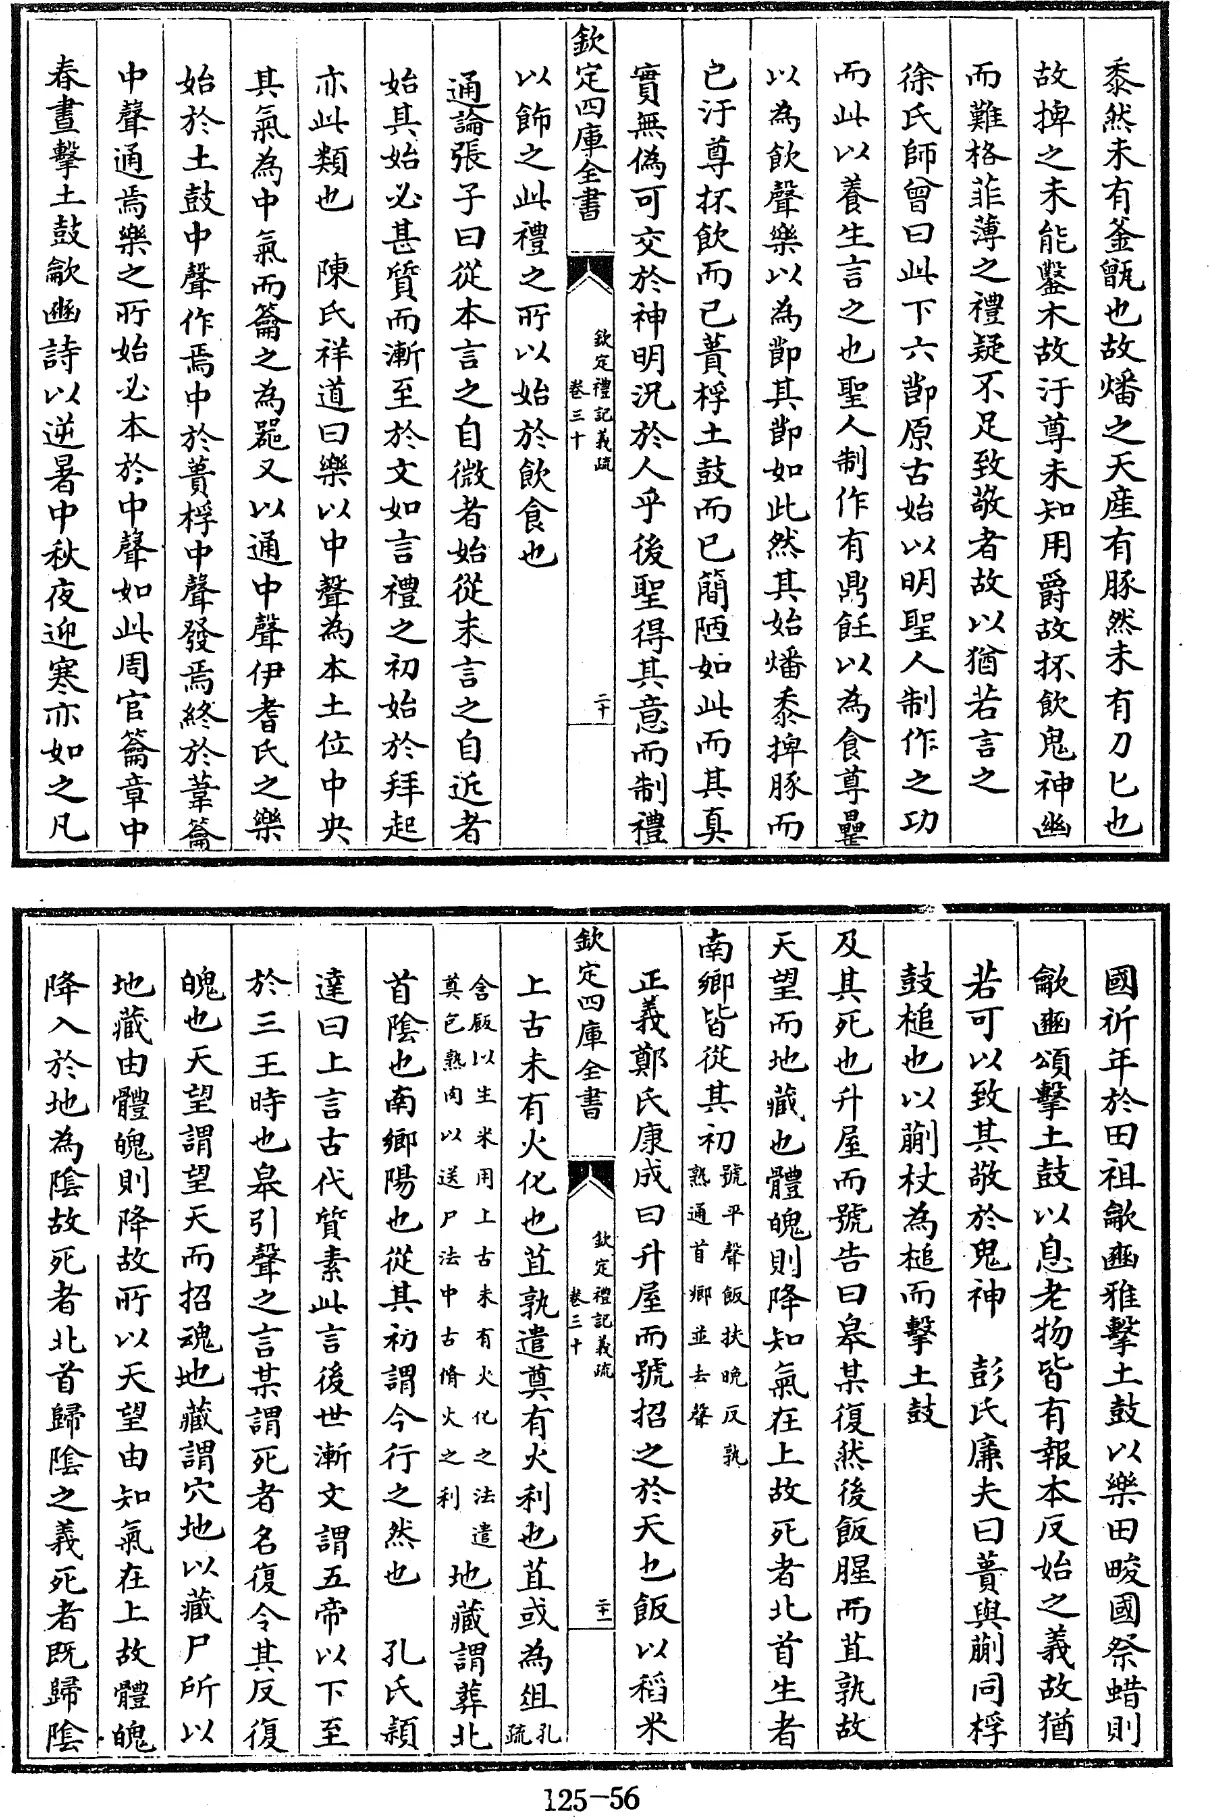 黍然未有釜甑也故燔之天産有豚然未有刀匕也
故捭之未能鑿木故汙尊未知用爵故抔飲鬼神幽
而難格菲薄之禮疑不足致敬者故以猶若言之
徐氏師曾曰此下六節原古始以明聖人制作之功
而此以養生言之也聖人制作有鼎飪以為食尊罍
以為飲聲樂以為節其節如此然其始燔黍捭豚而
已汙尊抔飲而已蕢桴土鼓而已簡陋如此而其真
實無偽可交於神明況於人乎後聖得其意而制禮
欽定四庫全書
欽定禮記義疏
卷三十
二十
以飾之此禮之所以始於飲食也
通論張子曰從本言之自微者始從末言之自近者
始其始必甚質而漸至於文如言禮之初始於拜起
亦此類也 陳氏祥道曰樂以中聲為本土位中央
其氣為中氣而籥之為器又以通中聲伊耆氏之樂
始於土鼓中聲作焉中於蕢桴中聲發焉終於葦籥
中聲通焉樂之所始必本於中聲如此周官籥章中
春晝擊土鼓龡豳詩以逆暑中秋夜迎寒亦如之凡
國祈年於田祖龡豳雅擊土鼓以樂田畯國祭蜡則
龡豳頌擊土鼓以息老物皆有報本反始之義故猶
若可以致其敬於鬼神 彭氏廉夫曰蕢與蒯同桴
鼓槌也以蒯杖為槌而擊土鼓
及其死也升屋而號告曰皋某復然後飯腥而苴孰故
天望而地藏也體魄則降知氣在上故死者北首生者
南鄉皆從其初號平聲飯扶晩反孰
熟通首鄉並去聲
正義鄭氏康成曰升屋而號招之於天也飯以稻米
欽定四庫全書
欽定禮記義疏
卷三十
二十一
上古未有火化也苴孰遣奠有火利也苴或為俎孔
疏
含飯以生米用上古未有火化之法遣
奠包熟肉以送尸法中古脩火之利地藏謂葬北
首陰也南鄉陽也從其初謂今行之然也 孔氏穎
達曰上言古代質素此言後世漸文謂五帝以下至
於三王時也皋引聲之言某謂死者名復令其反復
魄也天望謂望天而招魂地藏謂穴地以藏尸所以
地藏由體魄則降故所以天望由知氣在上故體魄
降入於地為陰故死者北首歸陰之義死者既歸陰
125-56